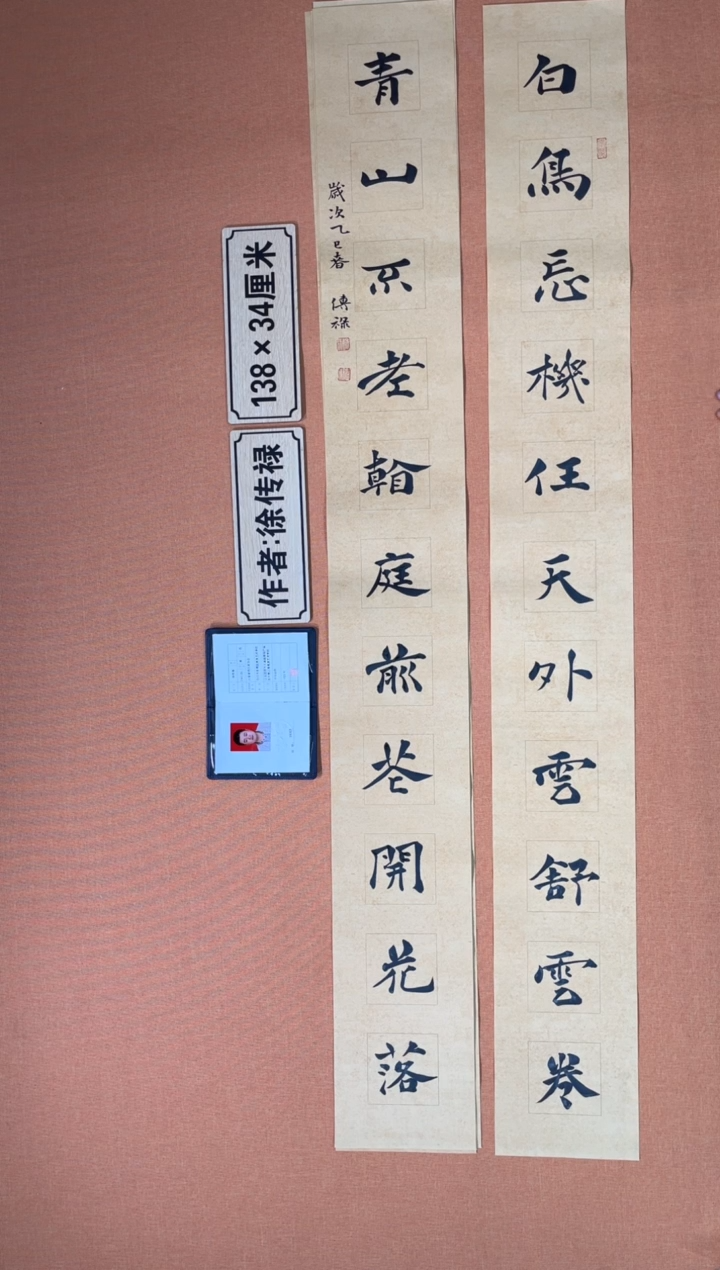 白鳥忘機任天外雲舒雲卷
青山不老看庭前花開花落
歲次乙巳春 傳祿
138×34厘米
作者:徐传禄